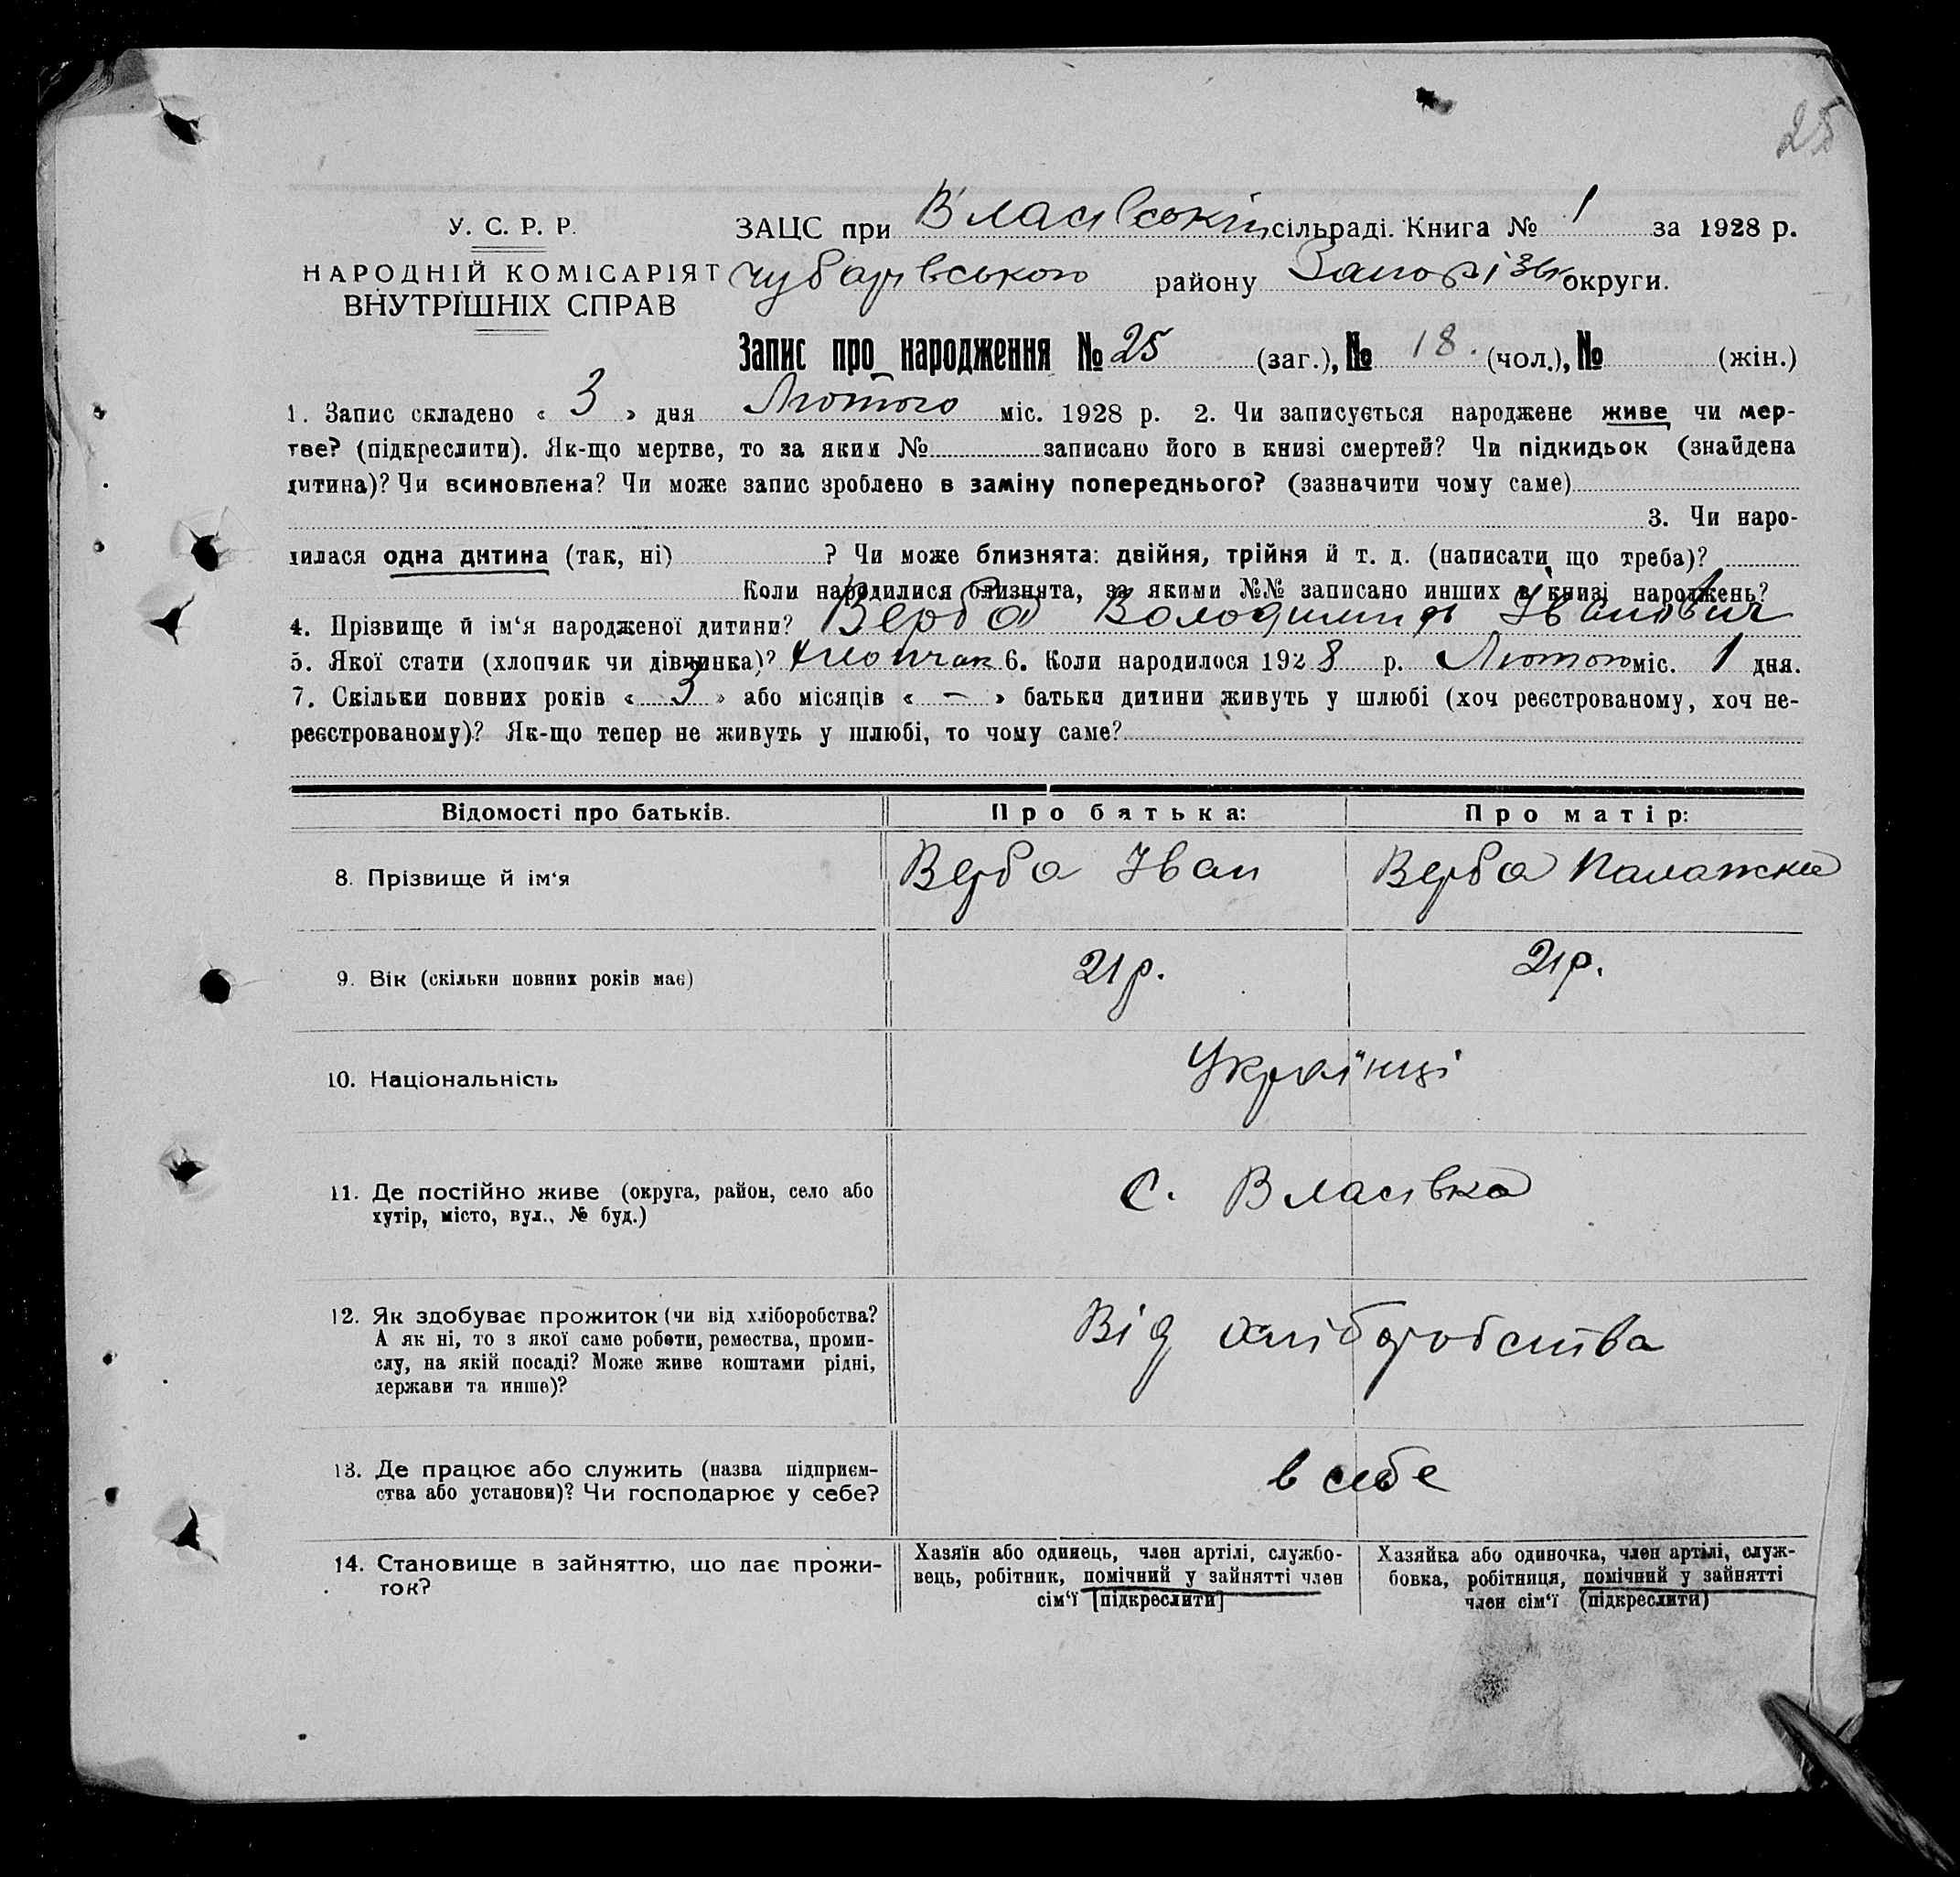 25
У. С. Р. Р.
НАРОДНІЙ КОМІСАРІЯТ
ВНУТРІШНІХ СПРАВ
ЗАЦС при Власівській сільраді. Книга № 1 за 1928 р.
Чубарівського району Запорізьк округи.
Запис про народження № 25 (заг.), № 18. (чол.), № (жін.)
1. Запис складено « 3 » дня Лютого міс. 1928 р. 2. Чи записується народжене живе чи мер-
тве? (підкреслити). Як-що мертве, то за яким № записано його в книзі смертей? Чи підкидьок (знайдена
дитина)? Чи всиновлена? Чи може запис зроблено в заміну попереднього? (зазначити чому саме)
3. Чи наро-
дилася одна дитина (так, ні) ? Чи може близнята: двійня, трійня й т. д. (написати що треба)?
Коли народилися близнята, за якими №№ записано инших в книзі народжень?
4. Прізвище й ім‘я народженої дитини? Верба Володимир Іванович
5. Якої стати (хлопчик чи дівчинка)? Хлопчак 6. Коли народилося 1928 р. Лютого міс. 1 дня.
7. Скільки повних років « 3 » або місяців « – » батьки дитини живуть у шлюбі (хоч реєстрованому, хоч не-
реєстрованому)? Як-що тепер не живуть у шлюбі, то чому саме?
Відомості про батьків. Про батька: Про матір:
8. Прізвище й ім‘я Верба Іван Верба Палажка
9. Вік (скільки повних років має) 21 р. 21 р.
10. Національність Українці
11. Де постійно живе (округа, район, село або
хутір, місто, вул., № буд.)
с. Власівка
12. Як здобуває прожиток (чи від хліборобства?
А як ні, то з якої саме роботи, ремества, проми-
слу, на якій посаді? Може живе коштами рідні,
держави та инше)?
Від хліборобства
13. Де працює або служить (назва підприєм-
ства або установи)? Чи господарює у себе?
в себе
14. Становище в зайняттю, що дає прожи-
ток?
Хазяїн або одинець, член артілі, службо-
вець, робітник, помічний у зайнятті член
сім‘ї [підкреслити]
Хазяйка або одиночка, член артілі, служ-
бовка, робітниця, помічний у зайнятті
член сім‘ї (підкреслити)